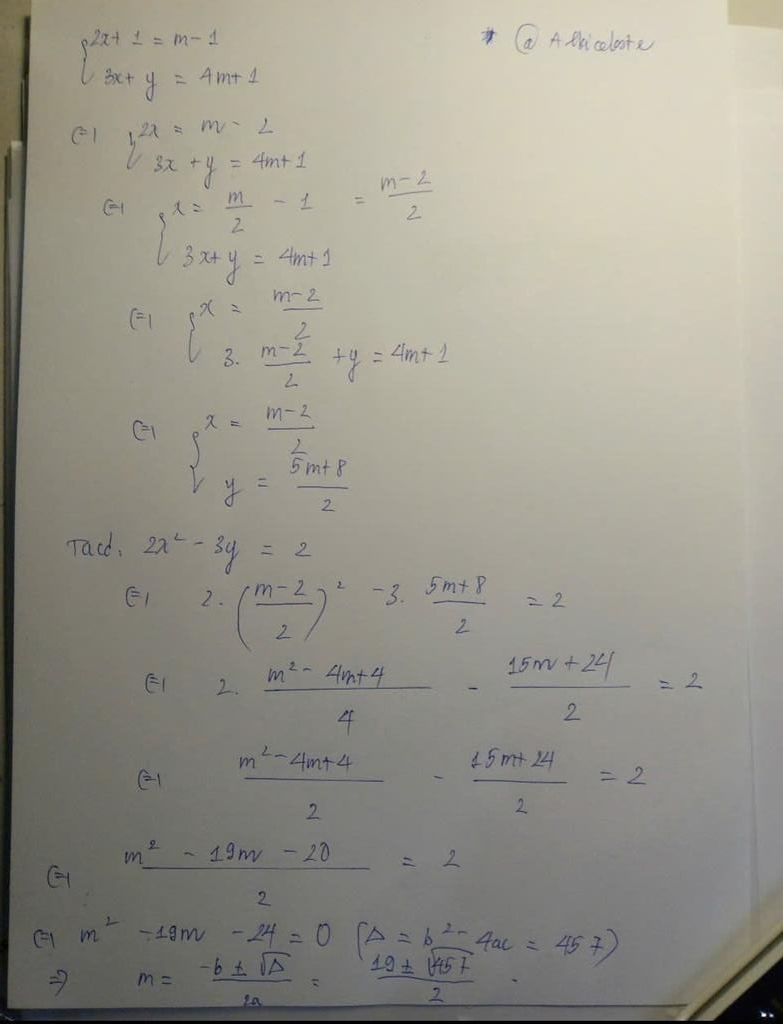 {2x + 1 = m - 1 * @ Albiceleste
3x + y = 4m + 1
⇔ {2x = m - 2
3x + y = 4m + 1
⇔ {x = m/2 - 1 = (m - 2)/2
3x + y = 4m + 1
⇔ {x = (m - 2)/2
3. (m - 2)/2 + y = 4m + 1
⇔ {x = (m - 2)/2
y = (5m + 8)/2
Tacd: 2x² - 3y = 2
⇔ 2. ((m - 2)/2)² - 3. (5m + 8)/2 = 2
⇔ 2. (m² - 4m + 4)/4 - (15m + 24)/2 = 2
⇔ (m² - 4m + 4)/2 - (15m + 24)/2 = 2
⇔ (m² - 19m - 20)/2 = 2
⇔ m² - 19m - 24 = 0 (Δ = b² - 4ac = 457)
⇒ m = (-b ± √Δ)/2a = (19 ± √457)/2 .